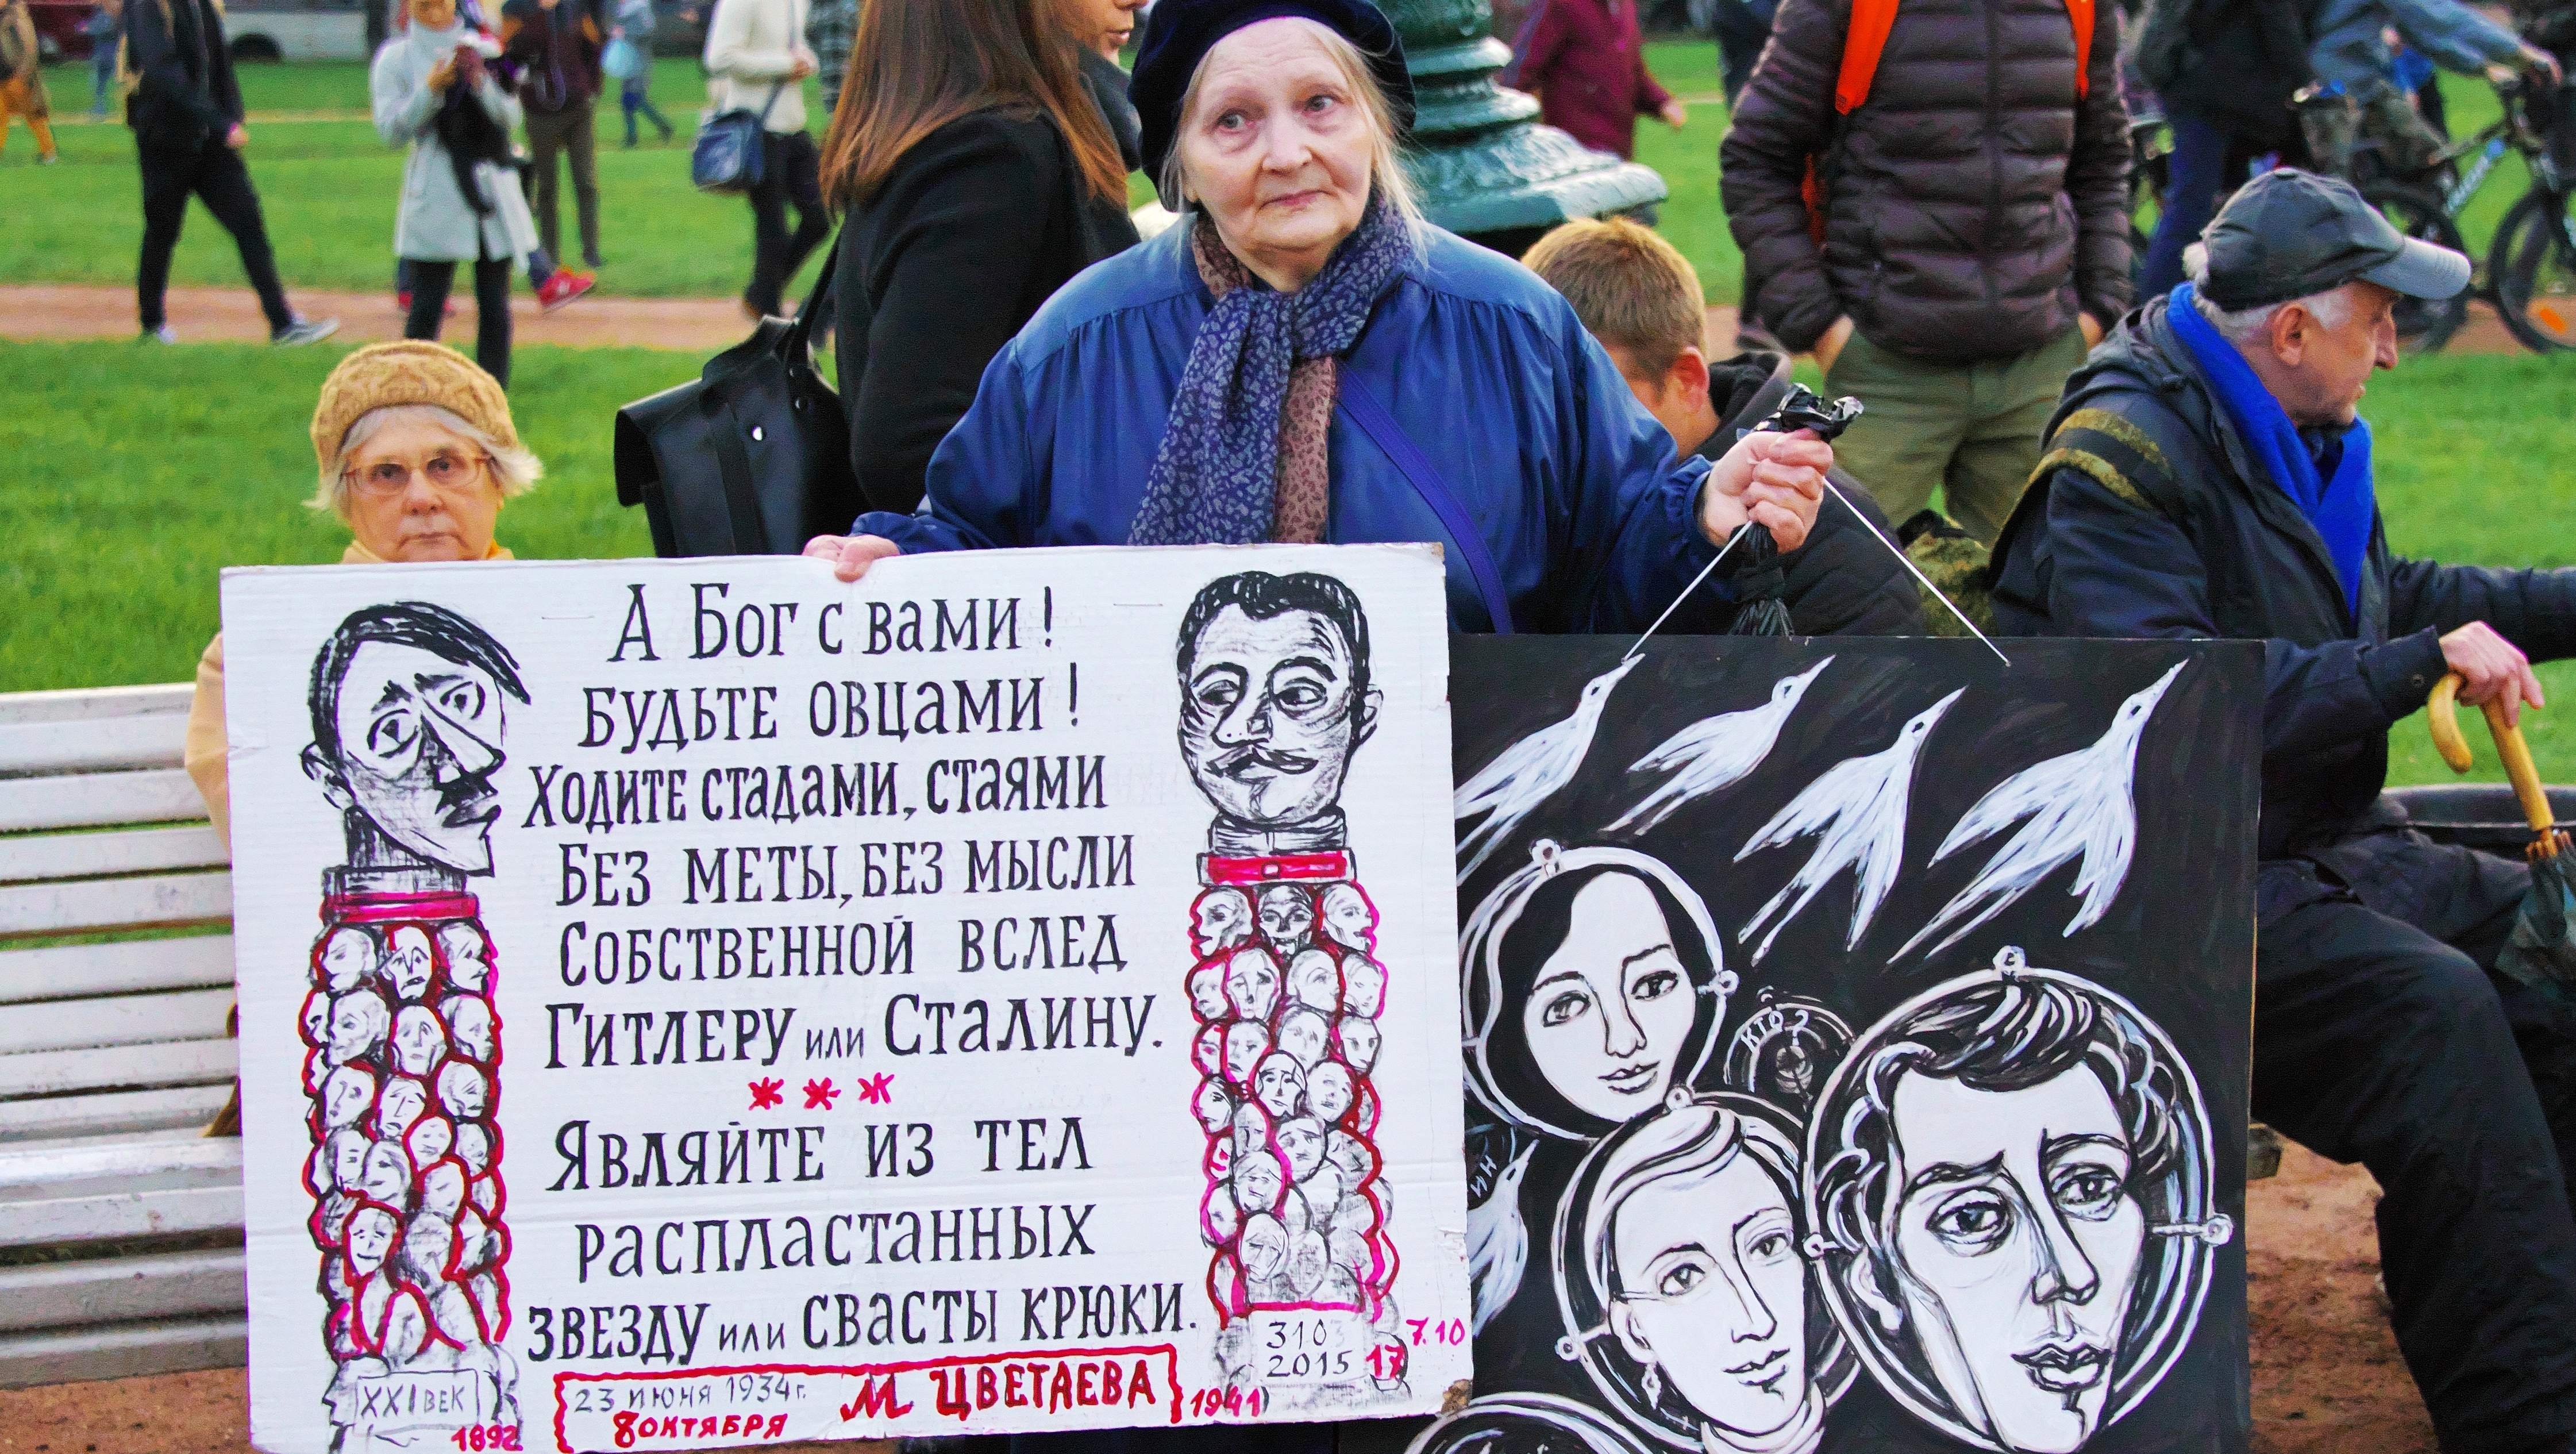 А Бог с вами!
Будьте овцами!
Ходите стадами, стаями
Без меты, без мысли
Собственной вслед
Гитлеру или Сталину.
***
Являйте из тел
распластанных
звезду или свасты крюки.
23 июня 1934г.
8 октября
М Цветаева
1892
1941
XXI век
3103
2015
17
7.10
КТО?